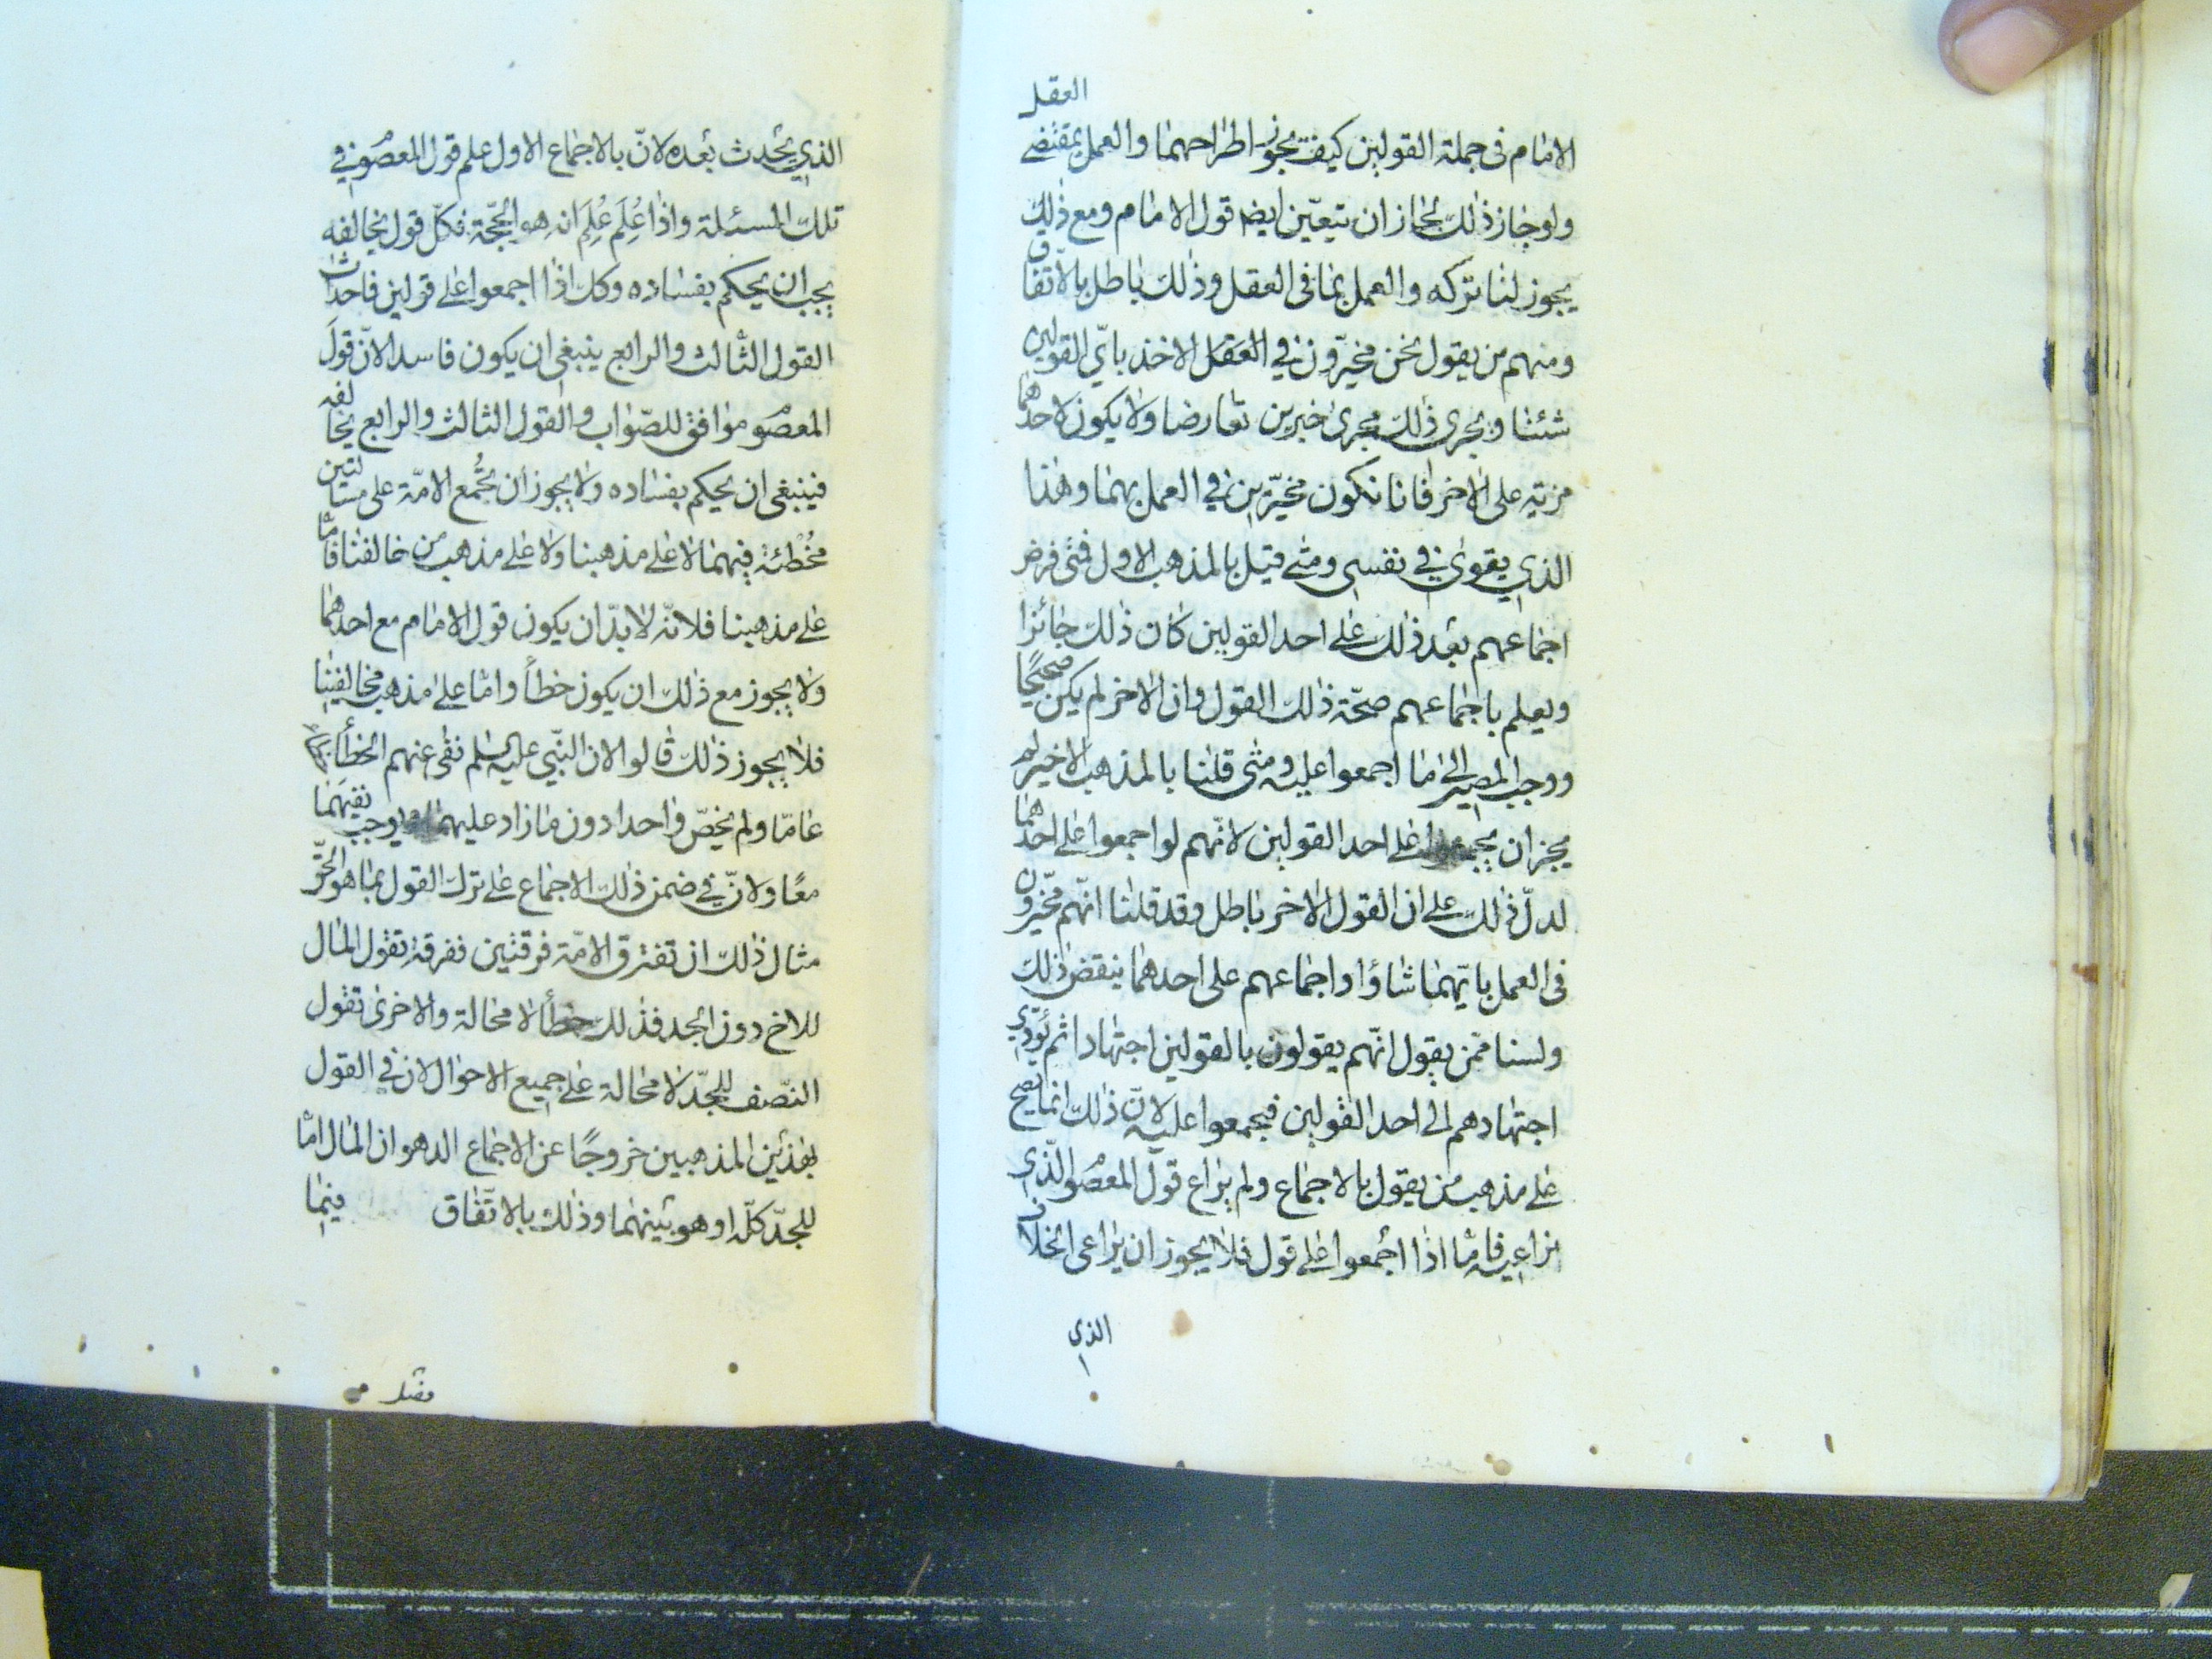 الامام فى جملة القولين كيف يجوز اطراحهما والعمل بمقتضى العقل
ولو جاز ذلك لجاز ان يتعيّن ايضا قول الامام ومع ذلك
يجوز لنا تركه والعمل بما فى العقل وذلك باطل بالاتفاق
ومنهم من يقول نحن مخيّرون في العقل الاخذ بايّ القولين
شئنا ويجرى ذلك مجرى خبرين تعارضا ولا يكون لاحدهما
مزية على الاخر فانا نكون مخيّرين في العمل بهما وهذا
الذي يقوى في نفسى ومتى قيل بالمذهب الاول فمتى فرض
اجماعهم بعد ذلك على احد القولين كان ذلك جائزا
ويعلم باجماعهم صحّة ذلك القول وان الاخر لم يكن صحيحًا
ووجب المصير الى ما اجمعوا عليه ومتى قلنا بالمذهب الاخير لم
يجز ان يجمعوا على احد القولين لانّهم لو اجمعوا على احدهما
لدلّ ذلك على ان القول الاخر باطل وقد قلنا انّهم مخيّرون
فى العمل بايّهما شاؤا واجماعهم على احدهما ينقض ذلك
ولسنا ممّن يقول انّهم يقولون بالقولين اجتهادا ثم يؤدّي
اجتهادهم الى احد القولين فيجمعوا عليه لانّ ذلك انما يصح
على مذهب من يقول بالاجماع ولم يراع قول المعصوم الذي
نراعيه فامّا اذا اجمعوا على قول فلا يجوز ان يراعى الخلاف
الذي
الذي يحدث بعده لانّ بالاجماع الاول علم قول المعصوم في
تلك المسئلة واذا عُلِم عُلِم انه هو الحجّة فكلّ قول يخالفه
يجب ان يحكم بفساده وكك اذا اجمعوا على قولين فاحداث
القول الثالث والرابع ينبغى ان يكون فاسدا لانّ قول
المعصوم موافق للصّواب والقول الثالث والرابع يخالفه
فينبغى ان يحكم بفساده ولا يجوز أن تُجمع الامّة على مسئلتين
مخُطئة فيهما لا على مذهبنا ولا على مذهب من خالفنا فامّا
على مذهبنا فلانّه لا بدّ ان يكون قول الامام مع احدهما
ولا يجوز مع ذلك ان يكون خطأ وامّا على مذهب مخالفينا
فلا يجوز ذلك قالوا لان النّبي عليه السلم نفى عنهم الخطأ
عامّا ولم يخصّ واحدا دون ما زاد عليهما فيوجب نفيهما
معًا ولانّ في ضمن ذلك الاجماع على ترك القول بما هو الحقّ
مثال ذلك ان تفترق الامّة فرقتين ففرقة تقول المال
للاخ دون الجد فذلك خطأ لا محالة والاخرى تقول
النّصف للجدّ لا محالة على جميع الاحوال لان في القول
بهذين المذهبين خروجًا عن الاجماع الدهو ان المال امّا
للجدّ كلّه او هو بينهما وذلك بالاتّفاق فيما